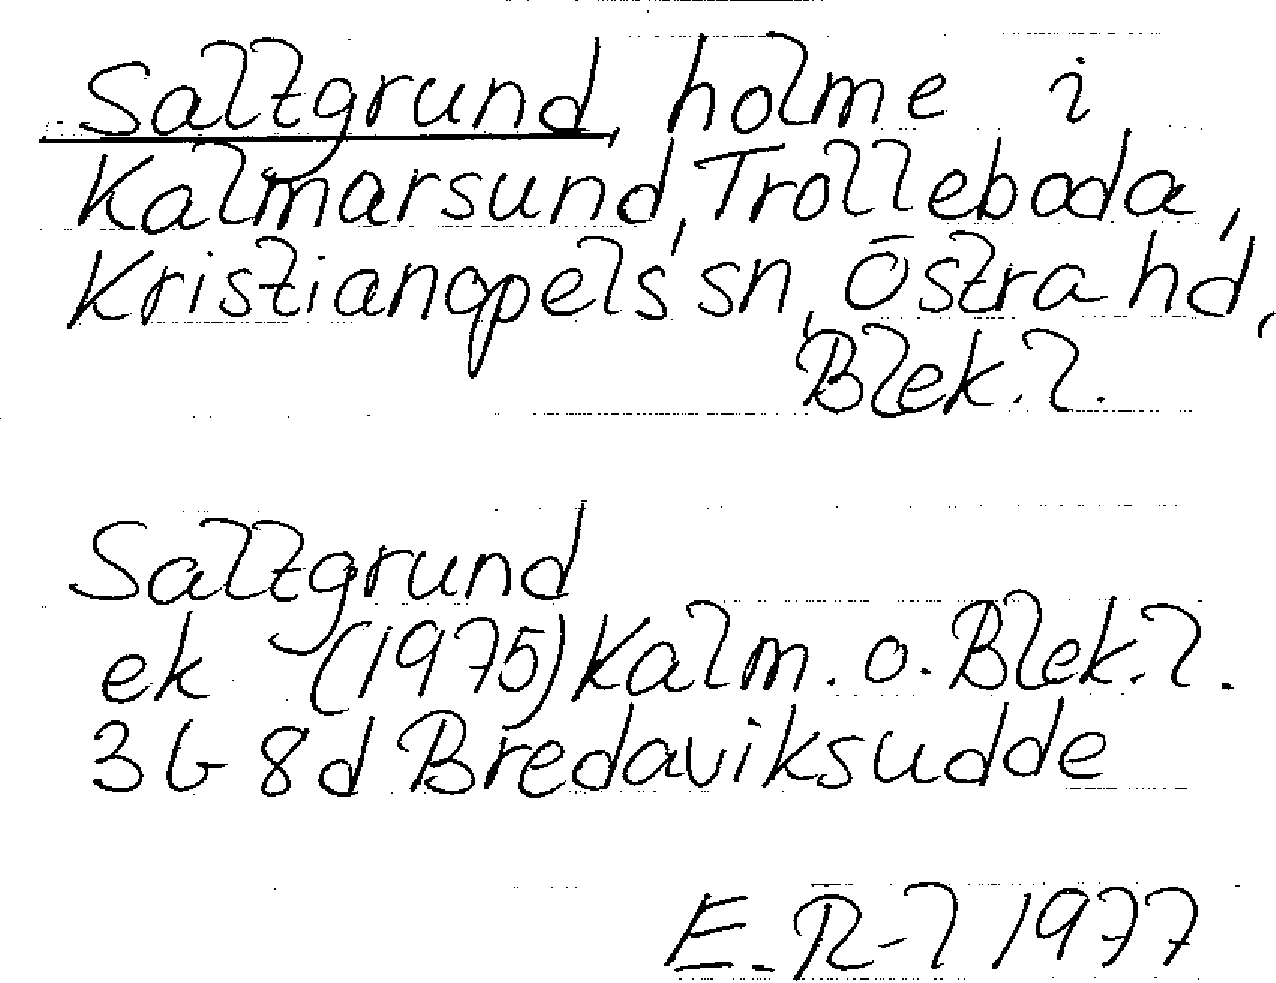 Saltgrund holme i
Kalmarsund, Trolleboda,
Kristianopels sn, Östra hd,
Blek. l.
Saltgrund
ek (1975) Kalm. o. Blek. l.
3G 8d Bredaviksudde
E. R-l 1977